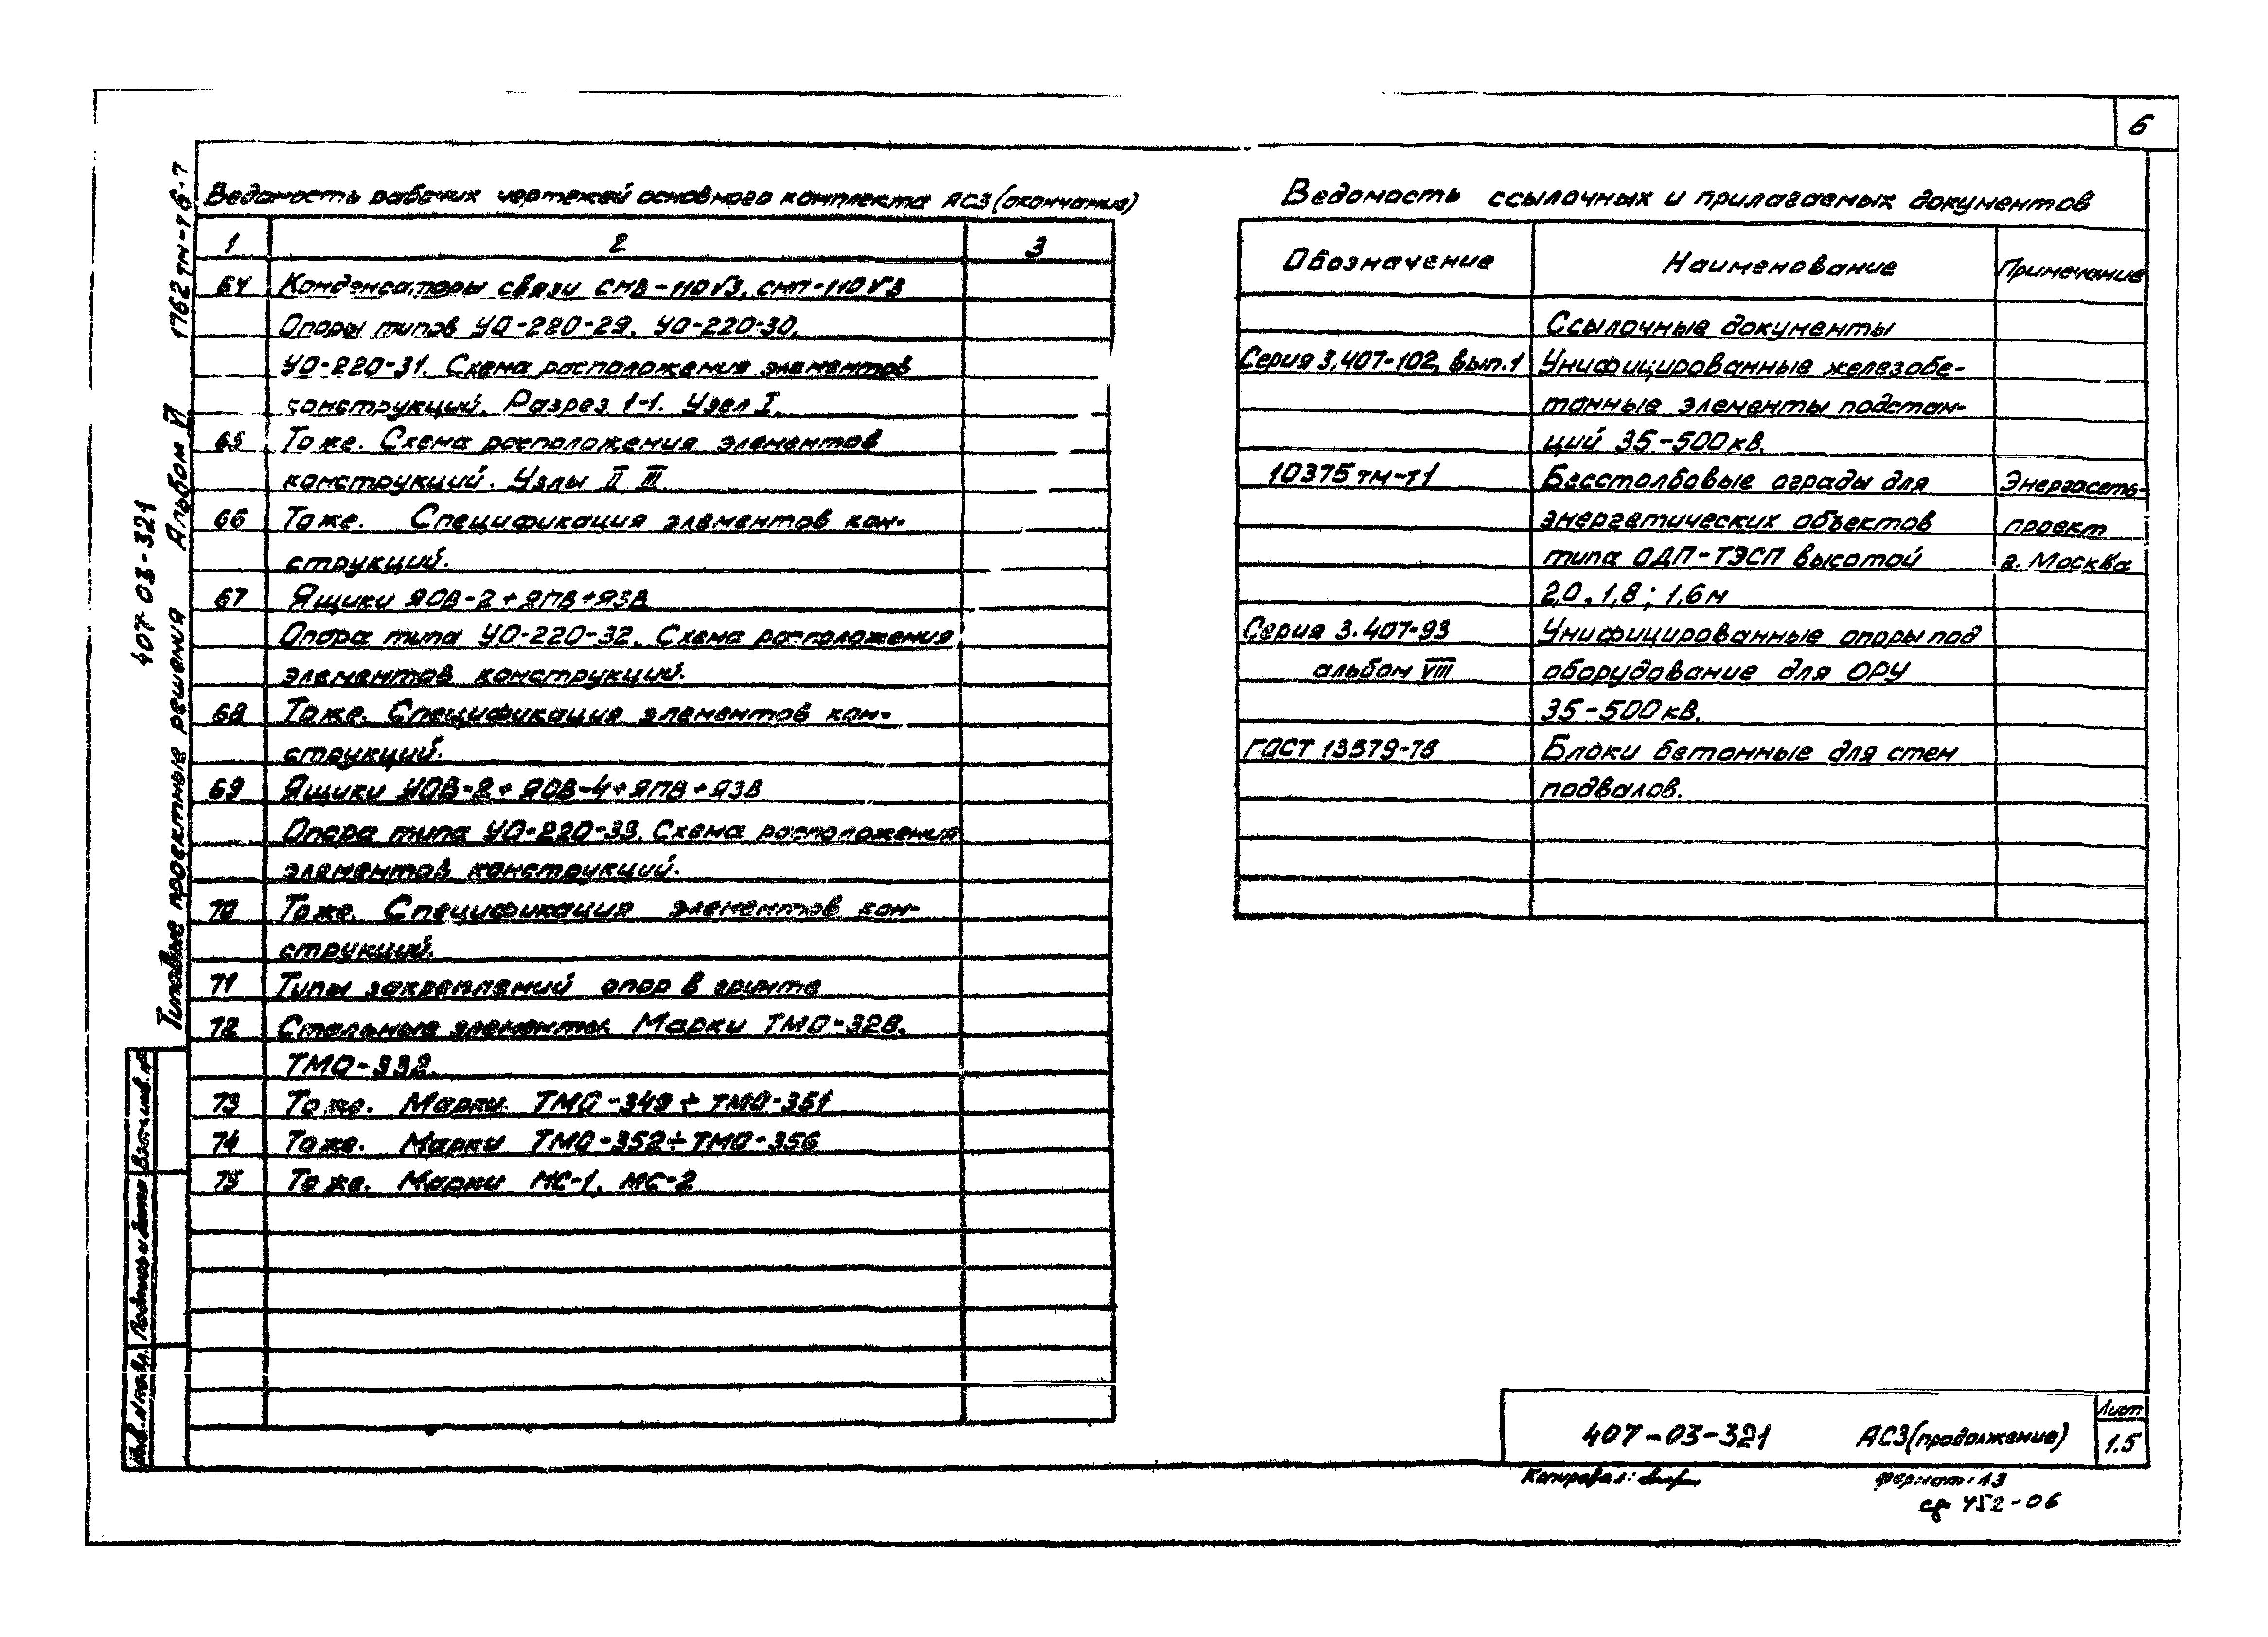 6
Ведомость рабочих чертежей основного комплекта АС3 (окончание)
1 2 3
64 Конденсаторы связи СМВ-110√3, СМП-110√3
Опоры типов УО-220-29, УО-220-30,
УО-220-31. Схема расположения элементов
конструкций. Разрез 1-1. Узел I.
65 То же. Схема расположения элементов
конструкций. Узлы II III
66 То же. Спецификация элементов кон-
струкций.
67 Ящики ЯОВ-2+ЯПВ+ЯЗВ
Опора типа УО-220-32. Схема расположения
элементов конструкций.
68 То же. Спецификация элементов кон-
струкций.
69 Ящики ЯОВ-2+ЯОВ-4+ЯПВ+ЯЗВ
Опора типа УО-220-33. Схема расположения
элементов конструкций.
70 То же. Спецификация элементов кон-
струкций.
71 Типы закреплений опор в грунте
72 Стальные элементы. Марки ТМО-328,
ТМО-332.
73 То же. Марки ТМО-349÷ТМО-351
74 То же. Марки ТМО-352÷ТМО-356
75 То же. Марки МС-1, МС-2
Ведомость ссылочных и прилагаемых документов
Обозначение Наименование Примечание
Ссылочные документы
Серия 3.407-102, вып.1 Унифицированные железобе-
тонные элементы подстан-
ций 35-500кв.
10375тм-т1 Бесстолбовые ограды для Энергосеть-
энергетических объектов проект
типа ОДП-ТЭСП высотой г. Москва
2,0, 1,8; 1,6м
Серия 3.407-93 Унифицированные опоры под
альбом VIII оборудование для ОРУ
35-500кв.
ГОСТ 13579-78 Блоки бетонные для стен
подвалов.
407-03-321
Типовые проектные решения Альбом VI 1762тм-т6-7
Инв.№ подл. Подпись и дата Взам.инв.№
407-03-321 АС3(продолжение)
Лист
1.5
Копировал: формат: А3
сф 452-06